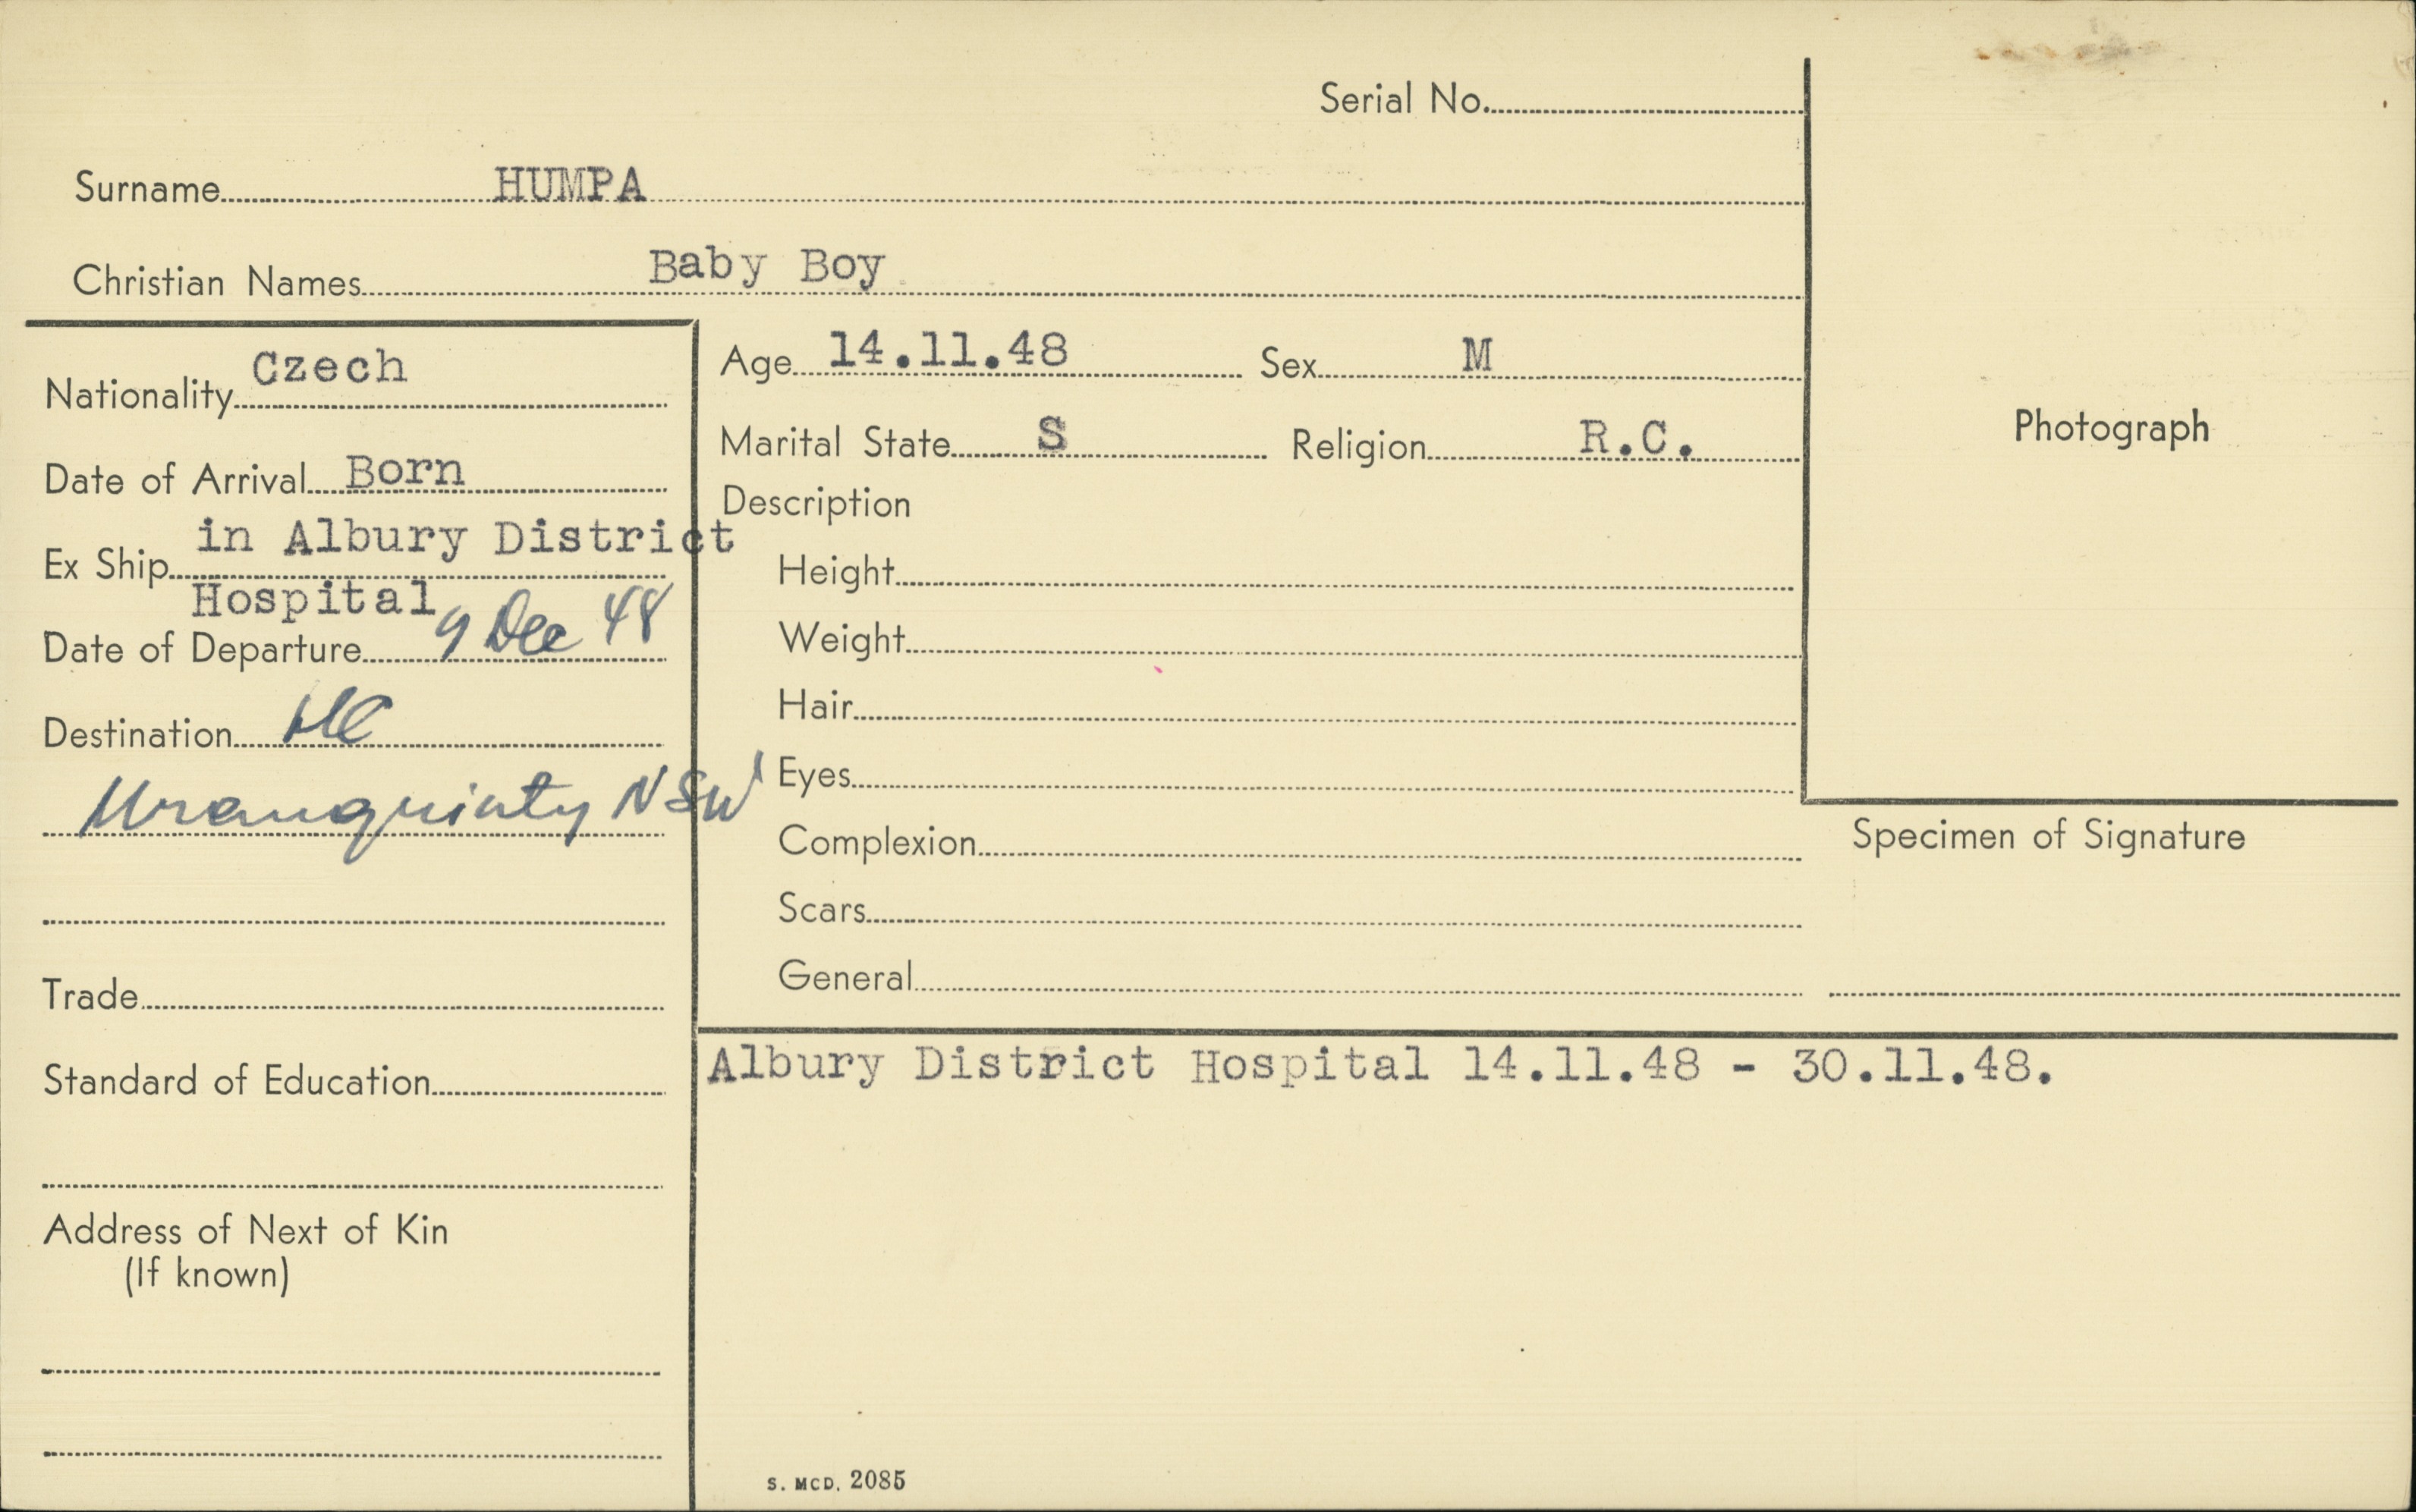 Serial No.
Surname HUMPA
Christian Names Baby Boy
Nationality Czech
Date of Arrival Born
Ex Ship in Albury District
Hospital
Date of Departure 9 Dec 48
Destination HC
Uranquinty NSW
Trade
Standard of Education
Address of Next of Kin
(If known)
Age 14.11.48 Sex M
Marital State S Religion R.C.
Description
Height
Weight
Hair
Eyes
Complexion
Scars
General
Photograph
Specimen of Signature
Albury District Hospital 14.11.48 - 30.11.48.
S. McD. 2085